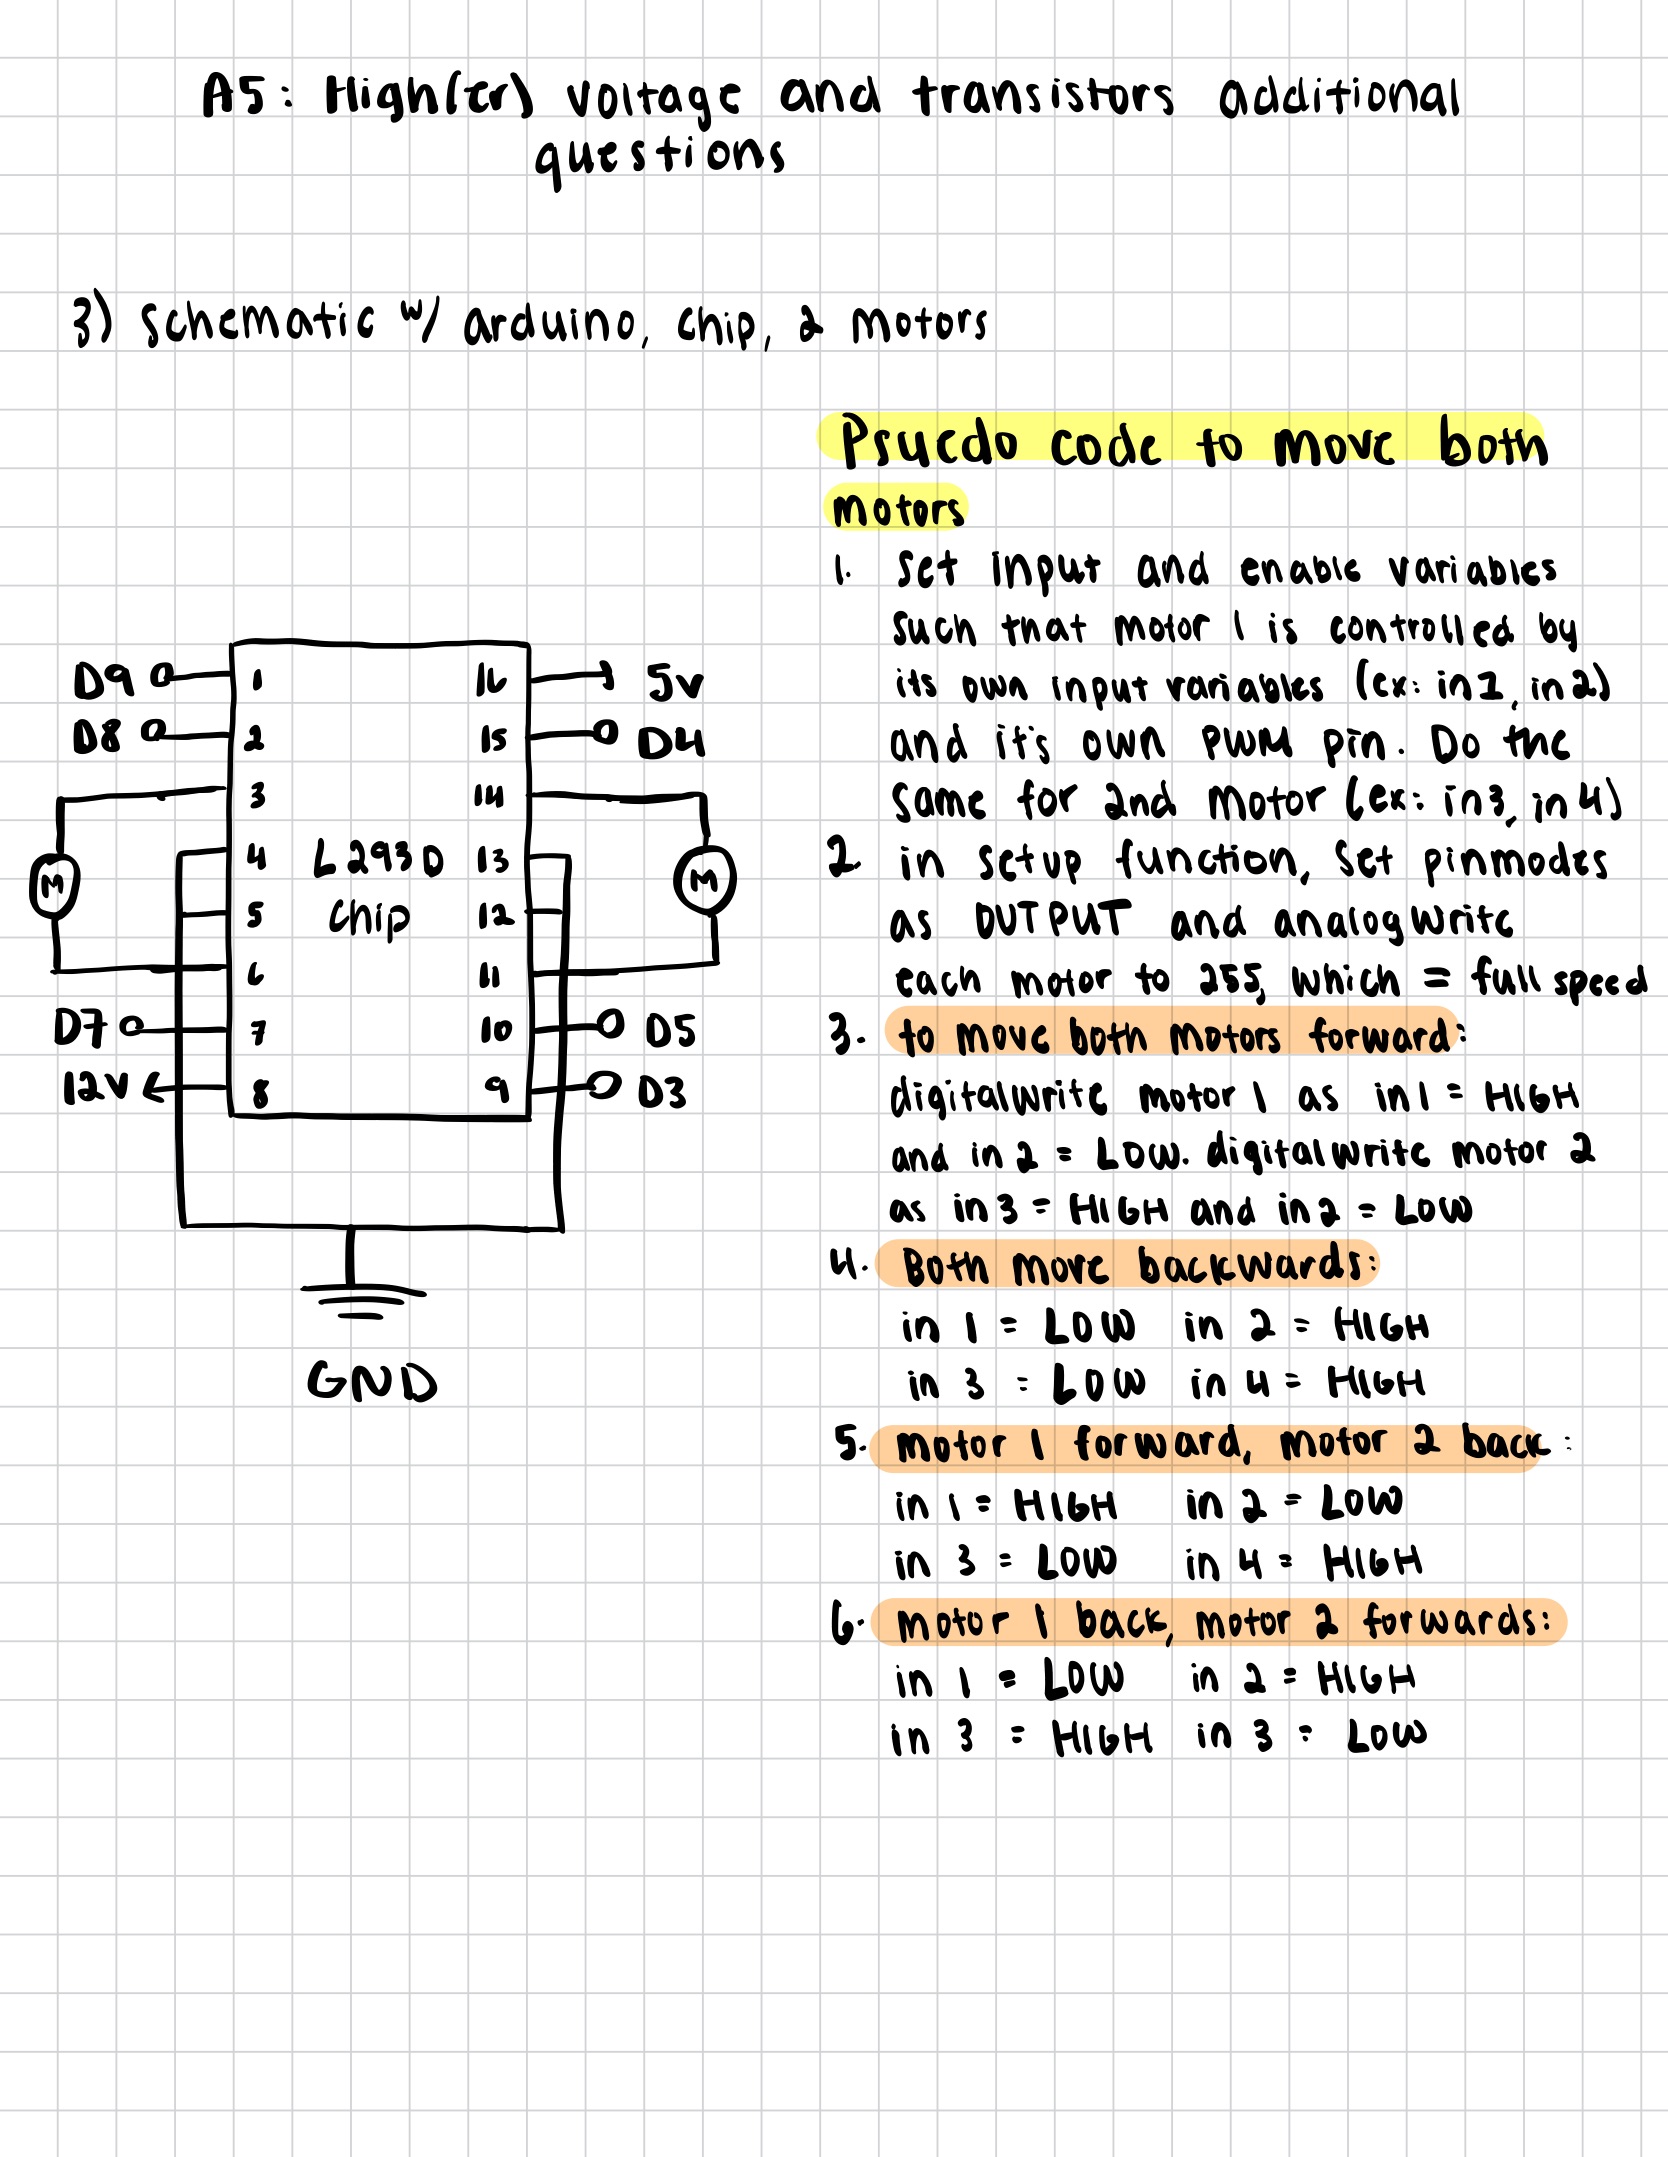 A5: High(er) voltage and transistors additional
questions
3) Schematic w/ arduino, chip, 2 motors
Psuedo code to move both
motors
1. Set input and enable variables
such that motor 1 is controlled by
its own input variables (ex: in1, in2)
and it's own PWM pin. Do the
same for 2nd motor (ex: in3, in4)
2. in setup function, set pinmodes
as OUTPUT and analogwrite
each motor to 255, which = full speed
3. to move both motors forward:
digitalwrite motor 1 as in1 = HIGH
and in 2 = LOW. digitalwrite motor 2
as in3 = HIGH and in2 = LOW
4. Both move backwards:
in 1 = LOW in 2 = HIGH
in 3 = LOW in 4 = HIGH
5. motor 1 forward, motor 2 back:
in 1 = HIGH in 2 = LOW
in 3 = LOW in 4 = HIGH
6. motor 1 back, motor 2 forwards:
in 1 = LOW in 2 = HIGH
in 3 = HIGH in 3 = LOW
D9 1 16 5v
D8 2 15 D4
3 14
4 L293D 13
M M
5 chip 12
6 11
D7 7 10 D5
12V 8 9 D3
GND